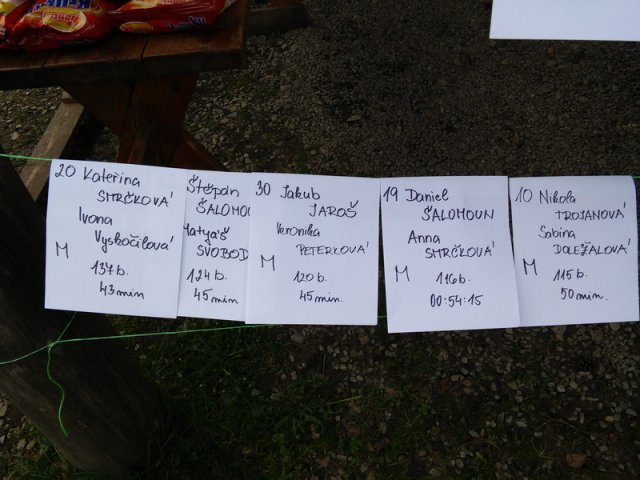 20 Kateřina
SMRČKOVÁ
Ivona
Vyskočilová
M
137 b.
43 min
Štěpán
ŠALOMOU
Matyáš
SVOBOD
124 b.
45 min
30 Jakub
JAROŠ
Veronika
PETERKOVÁ
M
120 b.
45 min.
19 Daniel
ŠALOMOUN
Anna
SMRČKOVÁ
M
116 b.
00:54:15
10 Nikola
TROJANOVÁ
Sabina
DOLEŽALOVÁ
M
115 b.
50 min.